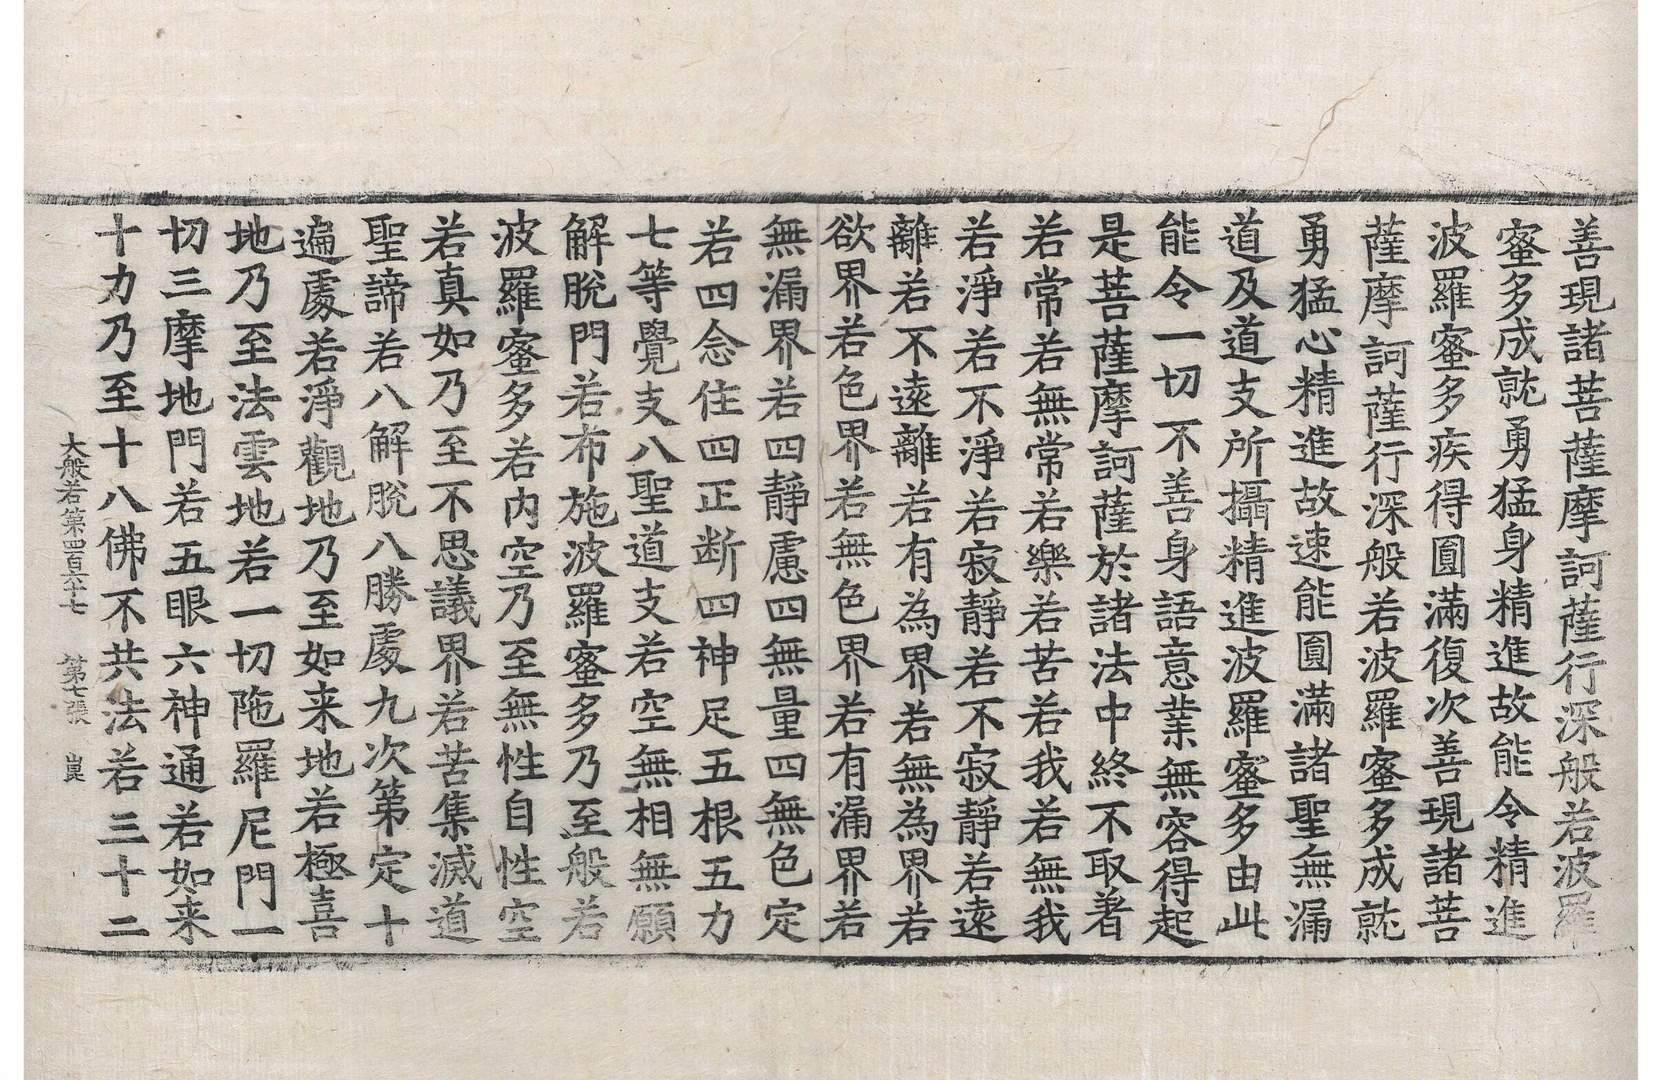 善現諸菩薩摩訶薩行深般若波羅
蜜多成就勇猛身精進故能令精進
波羅蜜多疾得圓滿復次善現諸菩
薩摩訶薩行深般若波羅蜜多成就
勇猛心精進故速能圓滿諸聖無漏
道及道支所攝精進波羅蜜多由此
能令一切不善身語意業無容得起
是菩薩摩訶薩於諸法中終不取著
若常若無常若樂若苦若我若無我
若淨若不淨若寂靜若不寂靜若遠
離若不遠離若有為界若無為界若
欲界若色界若無色界若有漏界若
無漏界若四靜慮四無量四無色定
若四念住四正断四神足五根五力
七等覺支八聖道支若空無相無願
解脫門若布施波羅蜜多乃至般若
波羅蜜多若內空乃至無性自性空
若真如乃至不思議界若苦集滅道
聖諦若八解脫八勝處九次第定十
遍處若淨觀地乃至如来地若極喜
地乃至法雲地若一切陁羅尼門一
切三摩地門若五眼六神通若如来
十力乃至十八佛不共法若三十二
大般若第四百六十七 第七張 崑